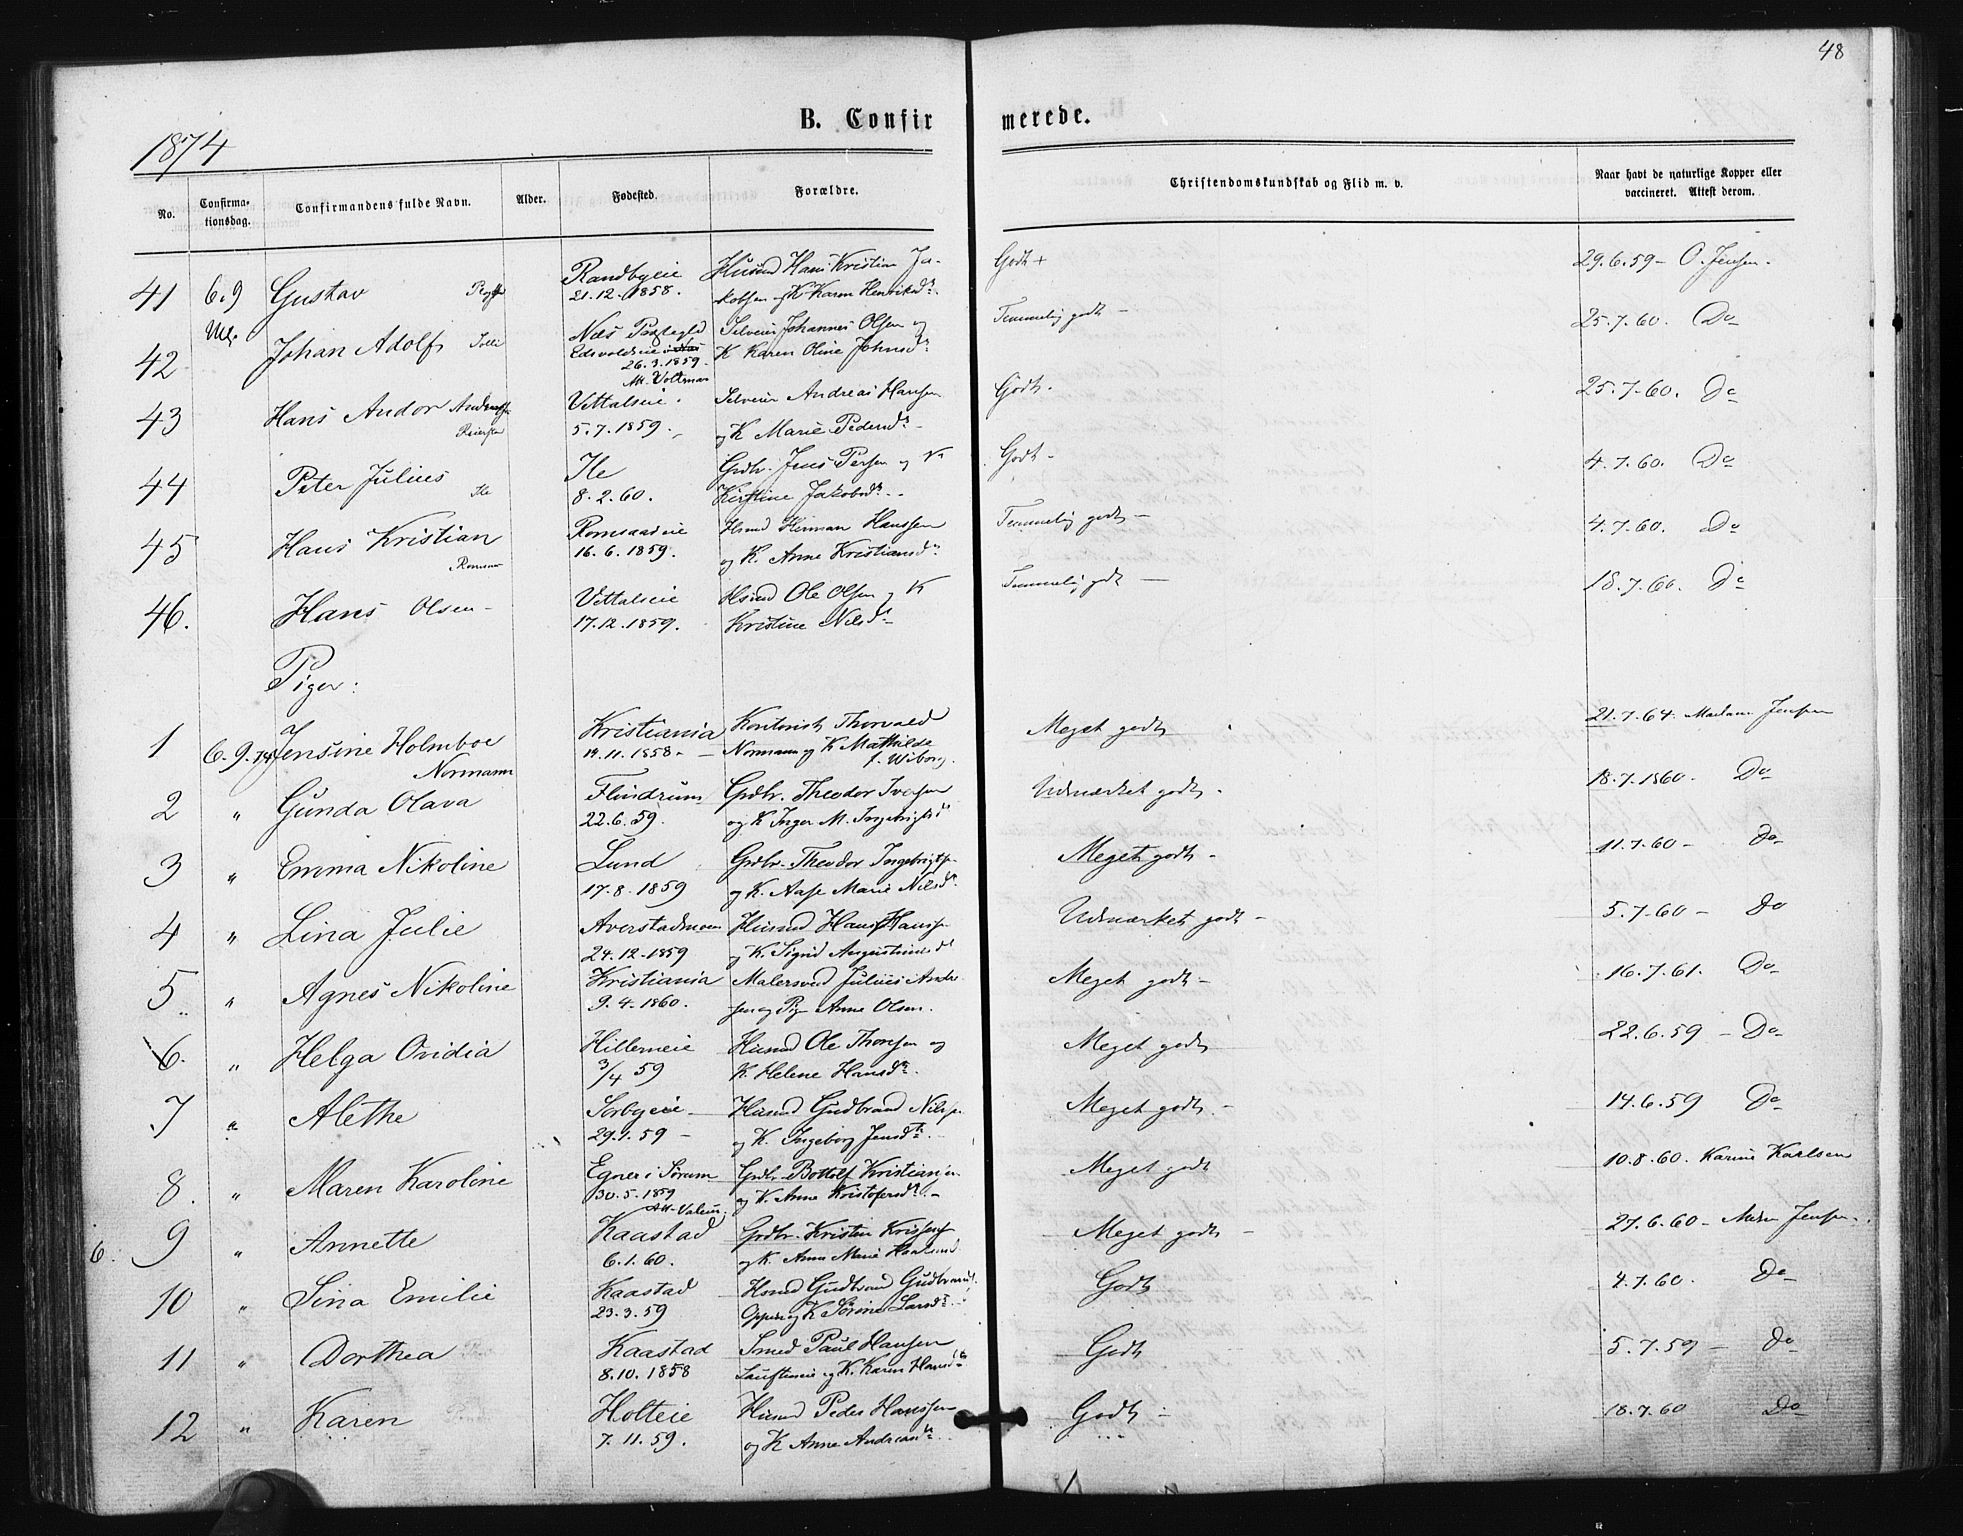 48
1874
B. Confirmerede.
No. Confirmationsdag. Confirmandens fulde Navn. Alder. Fødested. Forældre. Christendomskundskab og Flid m. v. Naar havt de naturlige Kopper eller vaccineret. Attest derom.
41 6.9 Gustav Randbyeie Husmd Hans Kristian Ja- Godt + 29.6.59 - O. Jensen.
21.12.1858. kobsen og K Karen Henriksdr.
Ul.
42 Johan Adolf Næs Præstegld Selveier Johannes Olsen og Temmelig godt - 25.7.60. Do
Edsvoldseie K Karen Oline Johnsdr
26.3.1859.
Att. Voltmar
43 Hans Andor Vettalseie. Selveier Andreas Hansen Godt. 25.7.60. Do
5.7.1859. og K Marie Pedersdr.
44 Peter Julius Ile Ile Grdbr. Jens Persen og K Godt - 4.7.60. Do
8.2.60. Kirstine Jakobsdr.
45 Hans Kristian Romsaaseie Hsmd Herman Hanssen Temmelig godt - 4.7.60. Do
16.6.1859. og K. Anne Kristiansdr
46. Hans Olsen - Vettalseie Hsmd Ole Olsen og K Temmelig godt - 18.7.60. Do
17.12.1859. Kristine Nilsdr
Piger:
1 6.9.74 Jensine Holmboe Kristiania Kontorist Thorvald Meget godt 21.7.64. Madam Jensen
Normann 19.11.1858 - Normann og K Mathilde
f. Wiborg.
2 " Gunda Olava Flindrum Grdbr. Theodor Iversen Udmærket godt - 18.7.1860. Do
22.6.59. og K Inger M. Ingebrigtsd
3 " Emma Nikoline Lund Grdbr. Theodor Ingebrigts. Meget godt - 11.7.60 - Do
17.8.1859 og K. Aase Marie Nilsdr.
4 " Lina Julie Averstadmoen Husmd Hans Hanss. Udmærket godt - 5.7.60 - Do
24.12.1859 og K. Sigrid Augustinusd
5 " Agnes Nikoline Kristiania Malersvend Julius Andr. Meget godt - 16.7.61. Do
9.4.1860. sen og Pig Anne Olsen.
6. " Helga Ovidia Hillerneie Husmd Ole Thoresen og Meget godt 22.6.59 - Do
3/4 59 K. Helene Hansdr.
7 " Alethe Sorbyeie - Husmd Gudbrand Nilss. Meget godt - 14.6.59 Do
29.1.59 - og K. Ingeborg Jensdtr.
8. " Maren Karoline Egner i Sørum Grdbr. Bottolf Kristians. Meget godt 10.8.60. Karine Karlsen
30.5.1859 og K. Anne Kristofersdr. -
6. 9 " Annette Kaastad Grdbr. Kristen Meget godt - 27.6.60 - Mdm Jensen.
6.1.60. og K. Anne Marie
10 " Lina Emilie Kaastad Hsmd Gudbrand Gudbrands. Godt 4.7.60. Do
23.3.59 og K Sørine Larsdr.
11 " Dorthea Kaastad Smed Paul Hansen Godt 5.7.59 - Do
8.10.1858 og K. Karen Hansdtr
12 " Karen Holteie Husmd Peder Hanssen Godt - 18.7.60 Do
7.11.59. og K Anne Andreasdr.